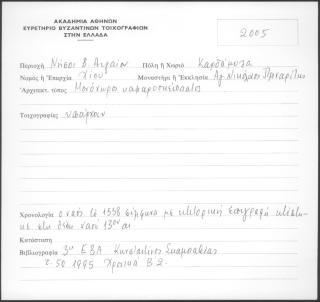 ΑΚΑΔΗΜΙΑ ΑΘΗΝΩΝ
ΕΥΡΕΤΗΡΙΟ ΒΥΖΑΝΤΙΝΩΝ ΤΟΙΧΟΓΡΑΦΙΩΝ
ΣΤΗΝ ΕΛΛΑΔΑ
2005
Περιοχή Νήσοι Β. Αιγαίου Πόλη ή Χωριό Καρδάμυλα
Νομός ή Ἐπαρχία Χίου Μοναστήρι ή Ἐκκλησία Αγ. Νικόλαος
Ἀρχιτεκτ. τύπος Μονόχωρο καμαροσκέπαστο
Τοιχογραφίες υπάρχουν
Χρονολογία ο ναός το 1558 σύμφωνα με κτιτορική επιγραφή
κε στη θέση ναού 13ου αι
Κατάσταση
Βιβλιογραφία 3η ΕΒΑ Κωνσταντίνος
τ. 50 1995 Χρονικά Β2